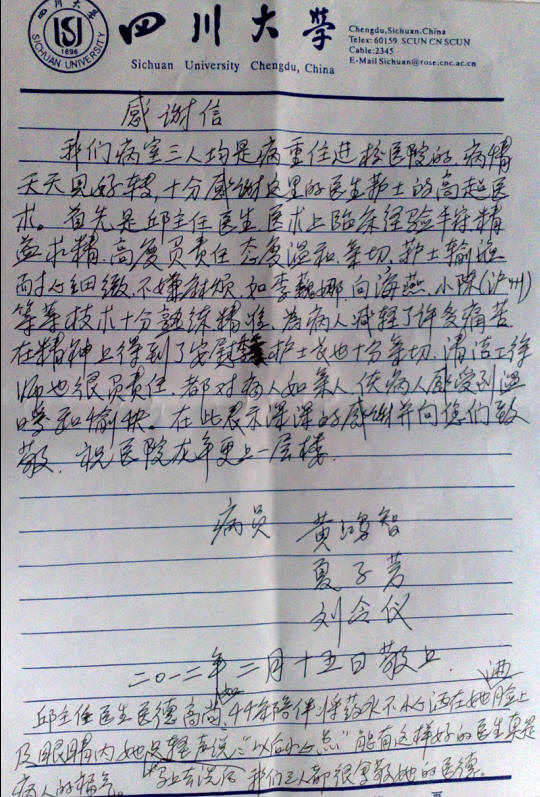 四川大学
SICHUAN UNIVERSITY
1896
Sichuan University Chengdu, China
Chengdu,Sichuan.China
Telex: 60159 SCUN CN SCUN
Cable:2345
E-Mail Sichuan@rose.cnc.ac.cn
感谢信
我们病室三人均是病重住进检医院的,病情
天天见好转,十分感谢这里的医生护士的高超医
术。首先是邱主任医生,医术上临床经验丰富精
益求精,高度负责任,态度温和,亲切,护士输液
耐心细致,不嫌麻烦,如李巍娜,向海燕,小陈(泸州)
等等技术十分熟练精准,為病人减轻了许多痛苦
在精神上得到了安慰 护士长也十分亲切,清洁工徐
师也很负责任,都对病人如亲人,使病人感受到温
暖和愉快。在此表示深深的感谢并向您们致
敬,祝医院龙年更上一层楼.
病员 黄鸿智
夏子芳
刘含仪
二〇一二年二月十五日敬上.
邱主任医生医德高尚,如44床陪伴将药水不小心洒在她脸上
及眼睛内,她只轻声说:"以后小心点"能有这样好的医生真是
病人的福气。 我们三人都很尊敬她的医德。